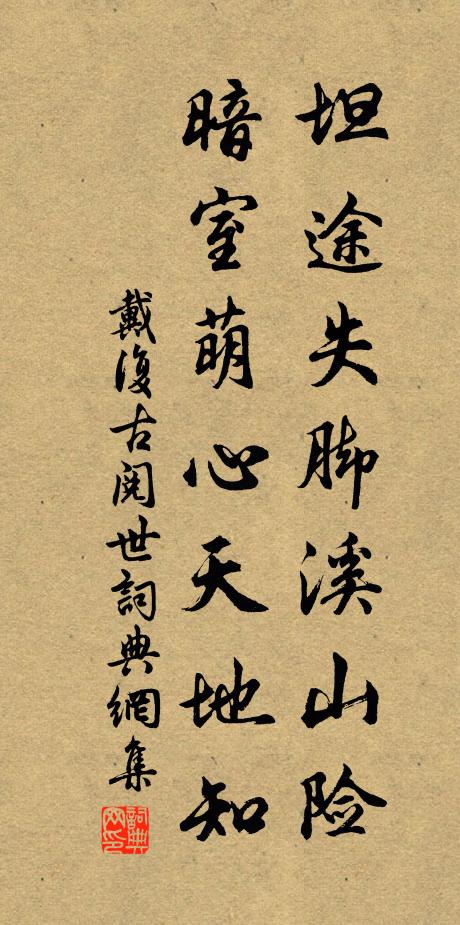 坦途失脚溪山险
暗室萌心天地知
戴復古閱世詞典網集
詞典网印